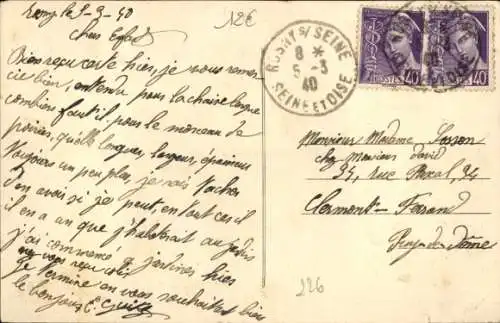 5-3-40
12€
Chers Enfants
Bien reçu carte hier, je vous remer
cie bien, entendu pour la chaise longue
combien faut il pour le morceau de
quelle longueur, largeur, épaisseur
Toujours un peu plus, je vais
d'en avoir si je peut, en tout cas il
il en a an que j'habiterait au
j'ai commencé a jardiner hier
avez vous reçu colis
Je termine en vous souhaitant bien
le bonjour
ROSNY S/ SEINE
8 *
5-3
40
SEINE ET OISE
POSTES 40
POSTES 40
Monsieur Madame
chez Monsieur David
34, rue Pascal, 34
Clermont-Ferrand
Puy-de-Dôme
226